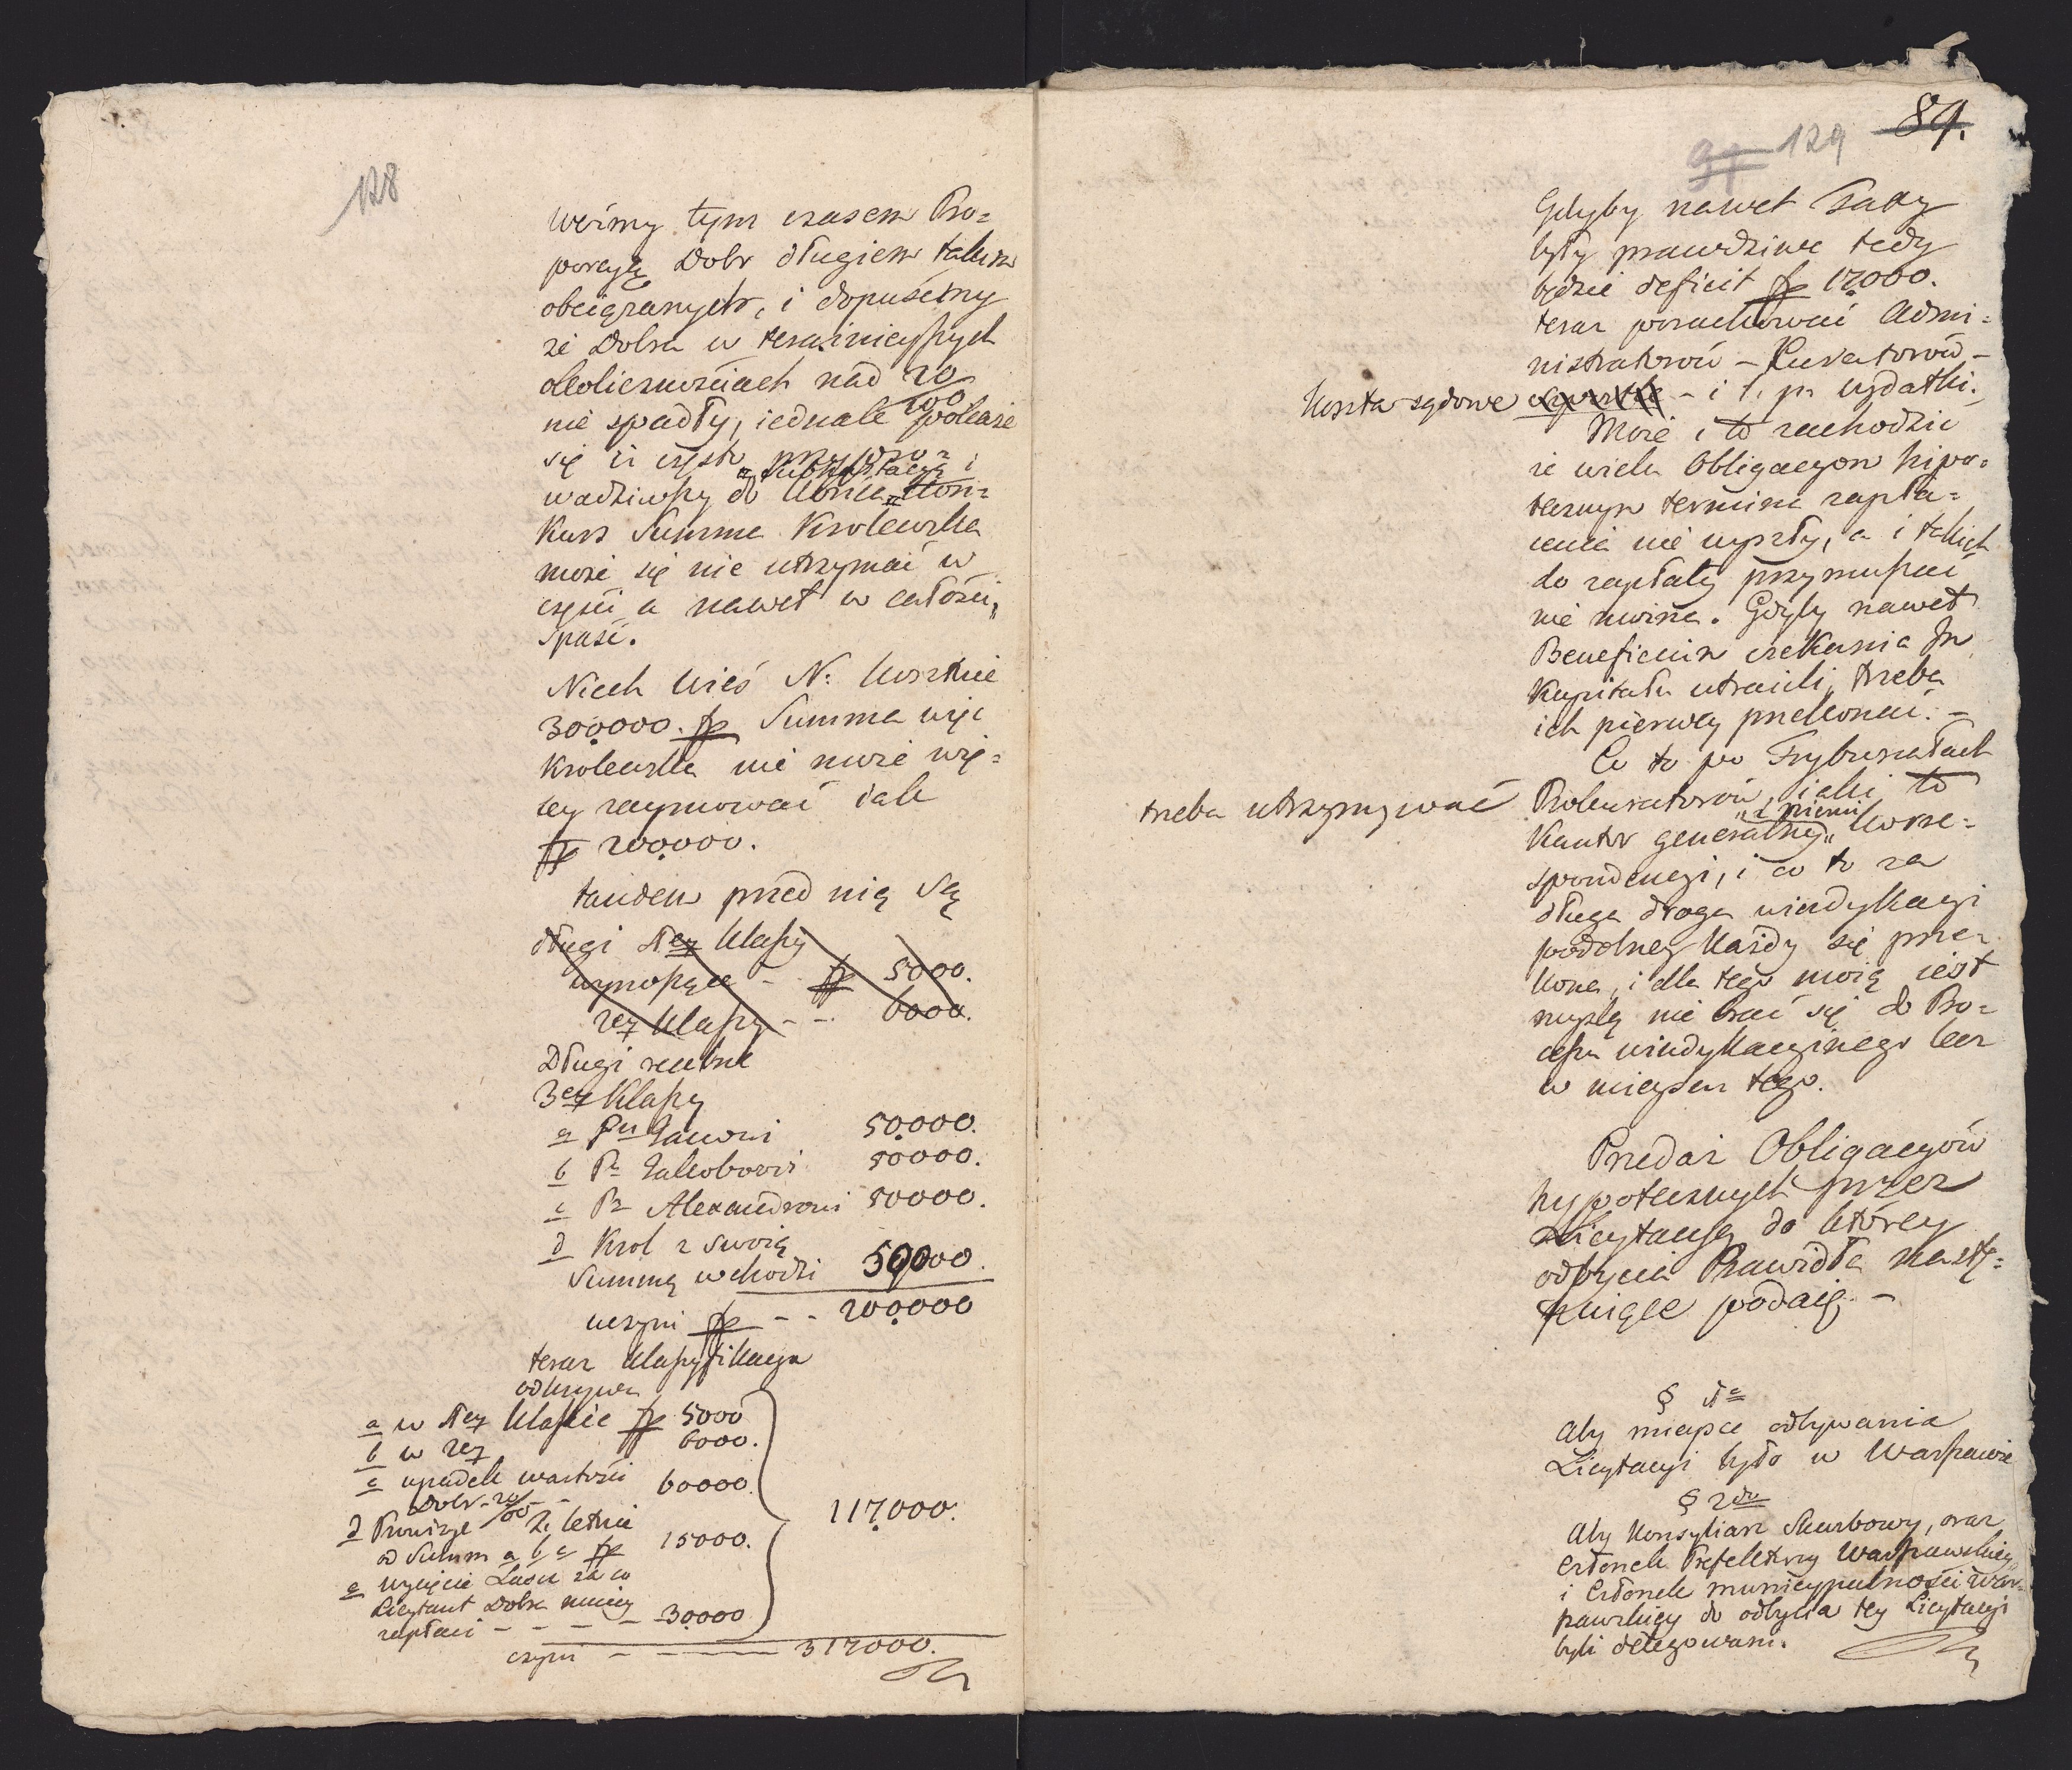 128
Weźmy tym czasem Pro=
porcyę Dobr długiem takim
obciążanych, i dopuśćmy
że Dobra w teraźnieyszych
okolicznościach nad 20/100
nie spadły, iednak pokaże
się iż często przypro=
wadziwszy do końca „Subhastacyą i„ Kon=
kurs Summa Krolewska
może się nie utrzymać w
części a nawet w całości,
spaść.
Niech Wieś N: kosztuie
300,000. fp Summa więc
Krolewska nie może wię=
cey zaymować iak
fp 200,000.
tandem przed nią Są
długi 1ey klassy
wynoszące - fp 5000.
2ey klassy - - 6000.
Długi realne
3ey Klassy
a Pu Janowi 50,000.
b P. Jakobowi 50000.
c Pu Alexandrowi 50000.
d Krol z swoią
Summą wchodzi 50000.
uczyni fp - - 200,000
teraz klassyfikacya
odkrywa
a w 1ey klassie fp 5000
b w 2ey 6000.
c upadek wartości
Dobr - 20/100 - 60000.
d Prowizye 2. letnie
od Summ a b c fp 15000.
e wycięcie Lasu za co
Licytant Dobra mniey
zapłaci - - - - 30,000
117,000.
czyni - - - 317000.
89.
91 129
Gdyby nawet Taxy
były prawdziwe tedy
będzie deficit fp 17,000.
teraz porachować Admi=
nistratorów - Kuratorów -
Koszta sądowe - i t. p. wydatki.
Może i to zachodzić
że wielu Obligacyom hipo=
tecznym termina zapła=
cenia nie wyszły, a i takich
do zapłaty przymuszać
nie można. Gdyby nawet
Beneficium czekania in
Kapitału utracili, trzeba
ich pierwey przekonać. -
Co to po Trybunałach
trzeba utrzymywać Prokuratorów, iaki to
Kantor generalney „z niemi„ korre=
spondencyi, i co to za
długa droga windykacyi
podobney każdy się prze=
kona, i dla tego moią iest
myślą nie brać się do Pro=
cessu windykacyinego lecz
w mieyscu tego.
Przedaż Obligacyów
hypotecznych przez
Licytacyą do którey
odbycia Prawidła nastę=
puiące podaię. -
§ 1o
Aby mieysce odbywania
Licytacyi było w Warszawie
§ 2do
Aby Konsyliarz Skarbowy, oraz
Członek Prefektury Warszawskiey
i Członek municypalności War=
szawskiey do odbycia tey Licytacyi
byli delegowani.